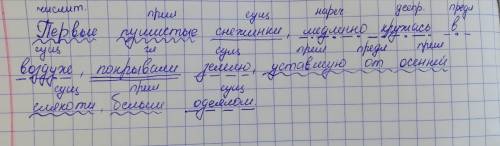 числит. прил сущ нареч деепр. предл
Первые пушистые снежинки, медленно кружась в
сущ гл сущ прич предл прил
воздухе, покрывали землю, уставшую от осенней
сущ прил сущ
слякоти, белым одеялом.